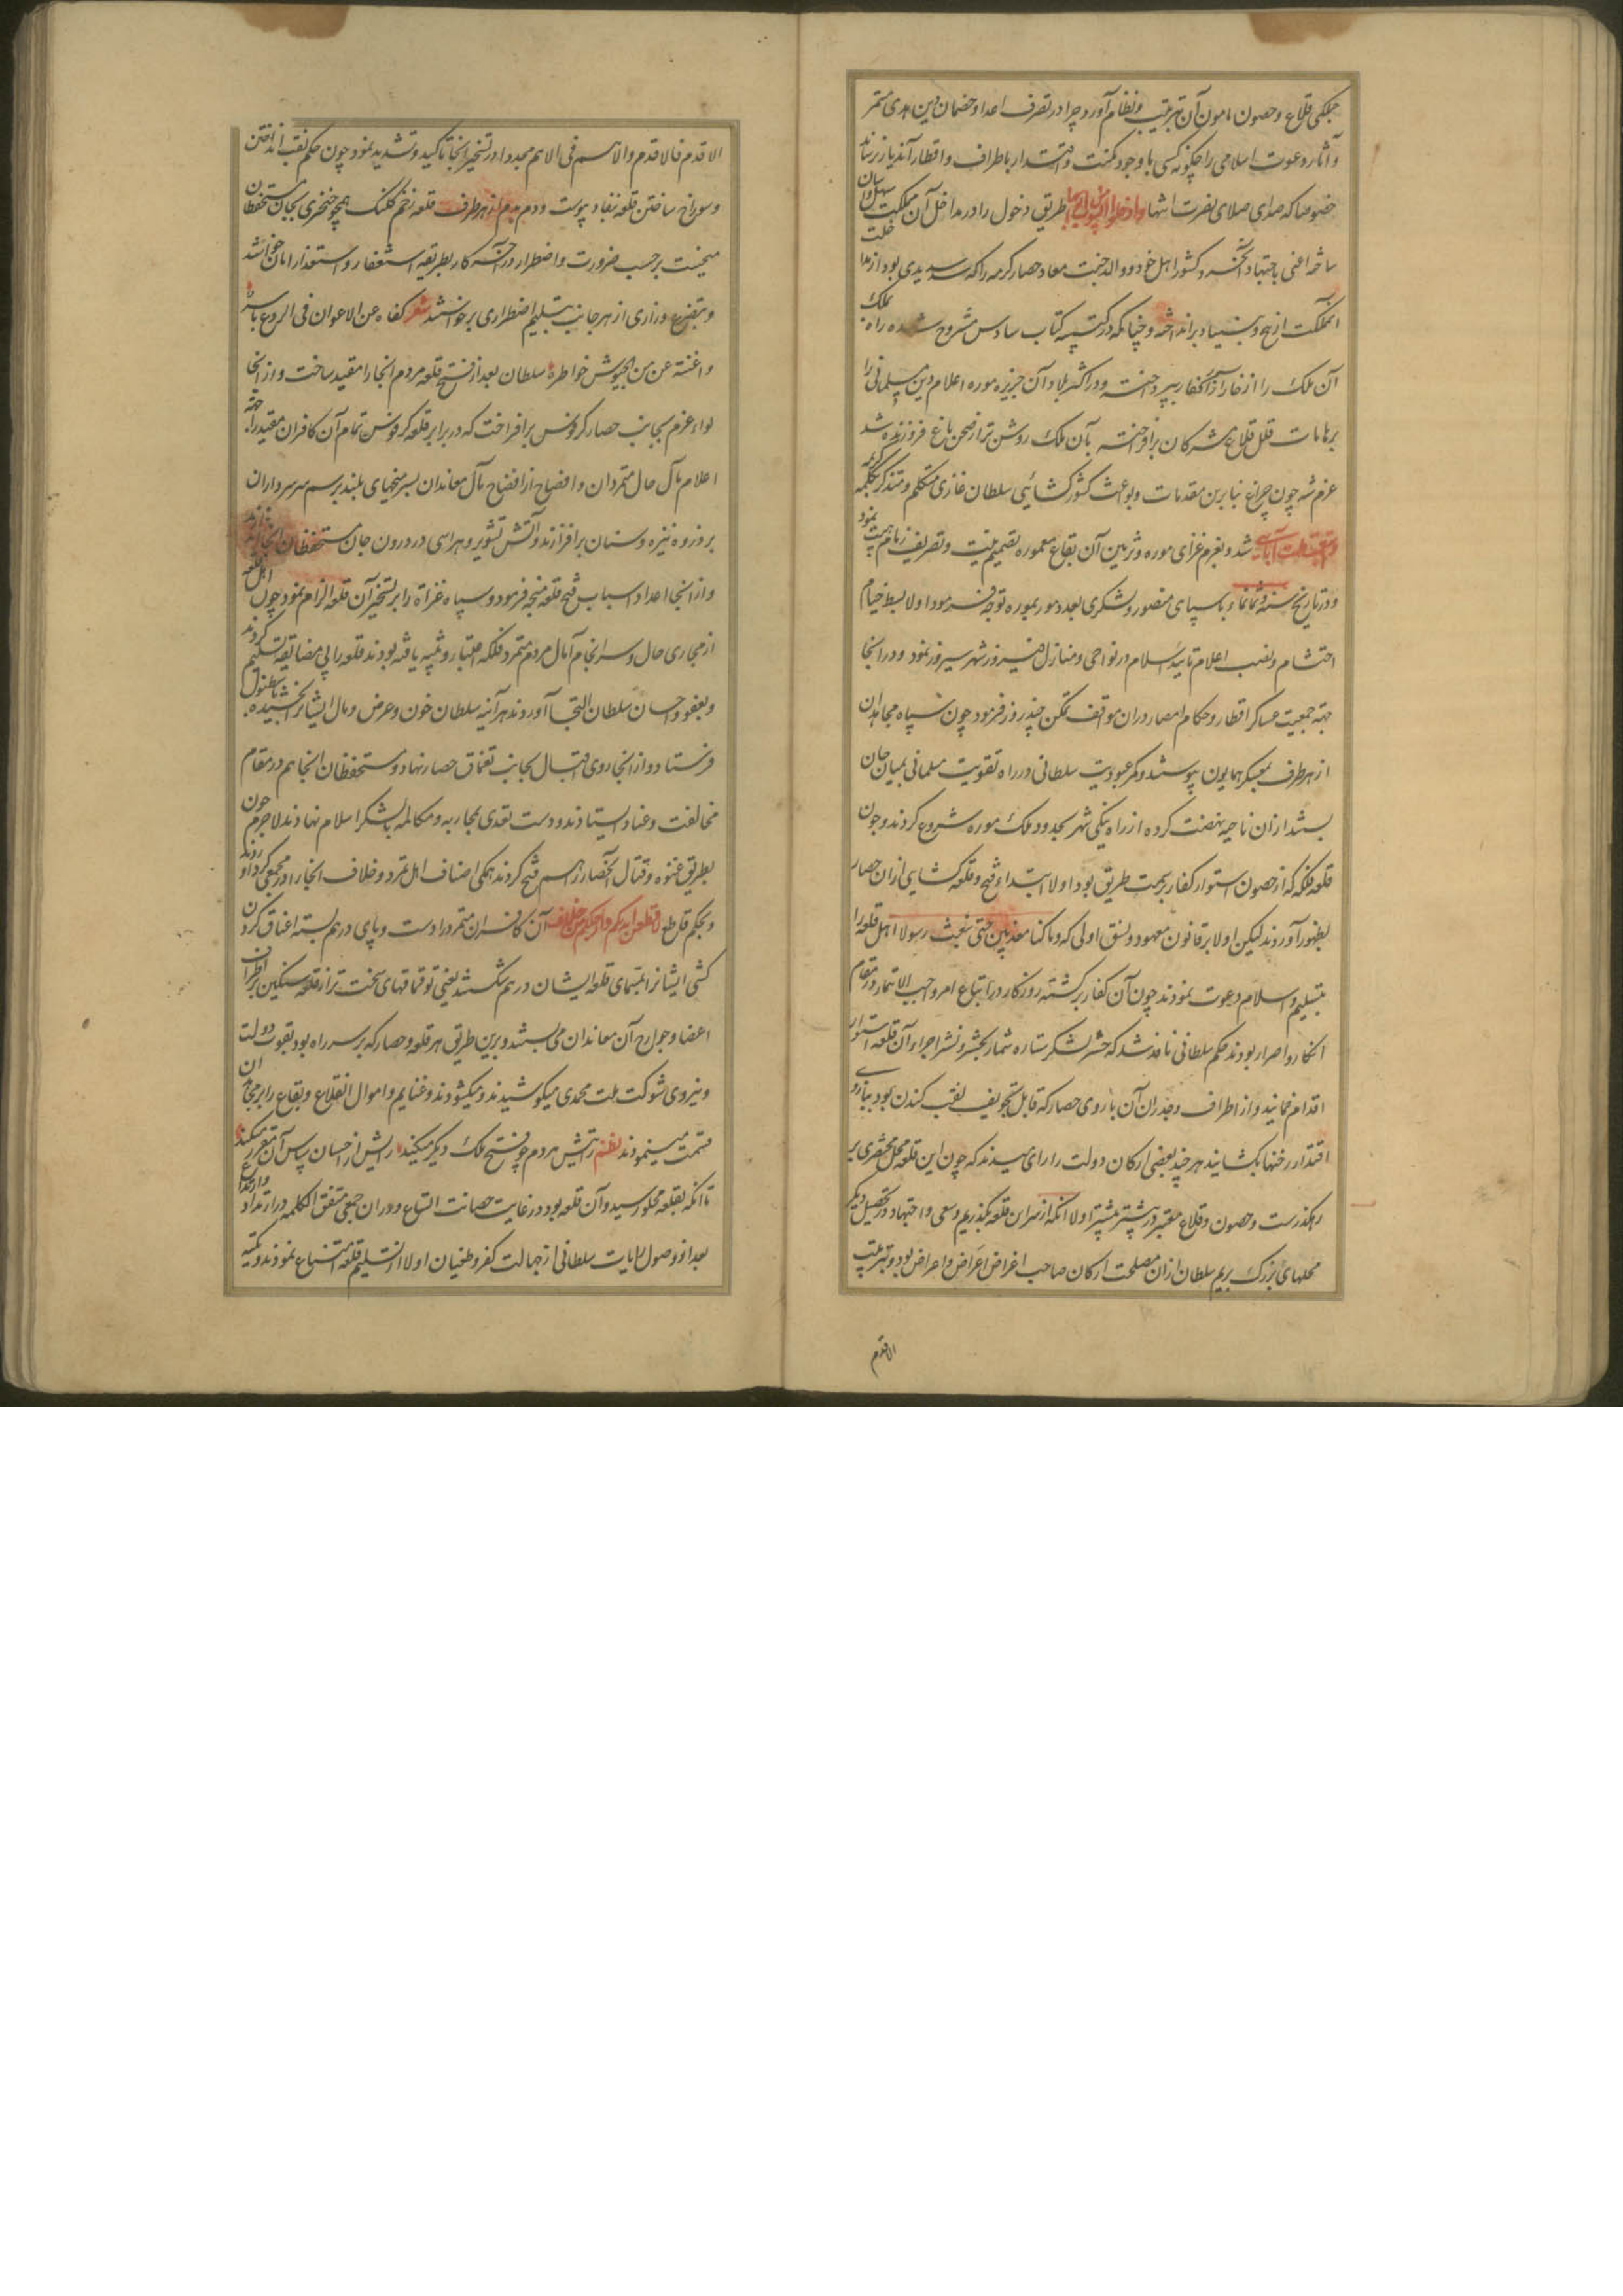 جملگی قلاع و حصون مامون آن بترتیب و نظام آورد چرا در تصرف اعدا و خصمان دین هدی مستمر
و آثار دعوت اسلامی را چگونه کسی با وجود مکنت و اقتدار باطراف و اقطار آن دیار نرساند
خصوصا که صدای صلای نصرت انتها طریق دخول را در مداخل آن مملکت سهل و آسان
ساخته اعنی باجتهاد آنحضرت و کشور اهل خود و والد جنت معاد حصار کرمه را که سدیدی بود از مداخلت
آنمملکت از بیخ و بنیاد برانداخته و چنانکه در کتیبه کتاب سادس مشروح شده راه بملک
آن ملک را از خار آزار کفار بپرداخته و در اکثر بلاد آن جزیره موره اعلام دین مسلمانی را
بر هامات قلل قلاع مشرکان برافروخته بآن ملک روشن تر از صحن باغ فروزنده شد
عزم شه چون چراغ بنابرین مقدمات و بواعث کشورکشائی سلطان غازی متکلم و متذکر بکلمه کریمه
شد و بعزم غزای موره و تزیین آن بقاع معموره تصمیم نیت و تصریف زمام همت نمود
و در تاریخ سنه و ثمانمائه با سپاهی منصور و لشکری بعدد مور بموره توجه فرمود اولا بسط خیام
احتشام و نصب اعلام تایید اسلام در نواحی و منازل فیروز شهر سیروز نمود و در آنجا
جهة جمعیت عساکر اقطار و حکام امصار در ان مواقف تمکن چند روز فرمود چون سپاه مجاهدان
از هر طرف بمعسکر همایون پیوستند و کمر عبودیت سلطانی در راه تقویت مسلمانی بمیان جان
بستند از ان ناحیه نهضت کرده از راه ینکی شهر بحدود ملک موره شروع کردند و چون
قلعه فلکه که از حصون استوار کفار بر سمت طریق بود اولا ابتداء فتح و قلعه کشایی از ان حصار
بظهور آوردند لیکن اولا بر قانون معهود و نسق اولی که و ما کنا معذبین حتی نبعث رسولا اهل قلعه را
بتسلیم و اسلام دعوت نمودند چون آن کفار برگشته روزگار در اتباع امر واجب الاتمار در مقام
انکار و اصرار بودند حکم سلطانی نافذ شد که حشر لشکر ستاره شمار بحشر و نشر اجزاء آن قلعه استوار
اقدام نمایند و از اطراف و جدران آن باروی حصار که قابل تجویف بنقب کندن بود ببازوی
اقتدار رخنها بکشایند هر چند بعضی ارکان دولت را رای میدند که چون این قلعه محل مختصری بر
رهکذرست و حصون و قلاع معتبر در پیشتر بیشتر اولا انکه از سر این قلعه بکذریم و سعی و اجتهاد در تحصیل دیگر
محلهای بزرک بریم سلطان از ان مصلحت ارکان صاحب اغراض اعراض و احراض بود و بترتیب
الاقدم
الاقدم فالاقدم والاهم فی الاهم مجددا در تسخیر انجا تاکید و تشدید نمود چون حکم نقب انداختن
و سوراخ ساختن قلعه بنفاد پیوست و دم بدم از هر طرف قلعه زخم کلنک همچو خنجری بجان مستحفظان
میخست برحسب ضرورت و اضطرار در آخر کار بطریقه استغفار و استعذار امان خواستند
و بتضرع و زاری از هر جانب بتسلیم اضطراری برخواستند شعر کفاه عن الاعوان فی الروع باسه
و اغنته عن من الجیوش خواطره سلطان بعد از فتح قلعه مردم انجا را مقید ساخت و از انجا
لواء عزم بجانب حصار کرفوس برافراخت که در برابر قلعه کرفوس تمام آن کافران مقید را جهة
اعلام مآل حال متمردان و افصاح از افضاح مآل معاندان بسر میخهای بلند برسم سرسرداران
بر زوه نیزه و سنان برافرازند و آتش تشویر و هراسی در درون جان مستحفظان انجا اندازند
و از انجا اعداد اسباب فتح قلعه منیجه فرمود و سپاه غزاة را بر تسخیر آن قلعه الزام نمود چون اهل قلعه
از مجاری حال و سرانجام آمال مردم متمرد فلکه اعتبار و تنبیه یافته بودند قلعه را بی مضایقه تسلیم کردند
و بعفو و احسان سلطان التجا آوردند هر آینه سلطان خون و عرض و مال ایشانرا بخشیده باستنبول
فرستاد و از انجا روی اقبال بجانب تغماق حصار نهاد و مستحفظان انجا هم در مقام
مخالفت و عناد ایستادند و دست تعدی بمحاربه و مکالمه با لشکر اسلام نهادند لاجرم چون
بطریق عنوه و قتال آنحصار را رسم فتح کردند همکی اصناف اهل تمرد و خلاف انجا را در مجمعی کرد آوردند
و بحکم قاطع لاقطعن ایدیکم وارجلکم من خلاف آن کافران متمرد را دست و پای در هم بسته اعناق کردن
کشی ایشانرا بتسمای قلعه ایشان درهم شکستند یعنی توقماقهای سخت تر از قلعه سنکین بر اطراف
اعضا و جوارح آن معاندان می بستند و برین طریق هر قلعه و حصار که بر سر راه بود بقوت دولت
و نیروی شوکت ملت محمدی میکوشیدند و میکشودند و غنایم و اموال انقلاع و بقاع را بر مجاهدان
قسمت مینمودند نظم ز تیغش هر دم چو فتح ملک دیگر میکند رایش از احسان سپاس آن مقرر میکند
تا انکه بقلعه محلور رسید و آن قلعه بود در غایت حصانت اتساع و در ان جمعی متفق الکلمه در ارتداد و ارتداع
بعد از وصول رایات سلطانی از جهالت کفر و طغیان اولا از تسلیم قلعه امتناع نمودند و تکیه